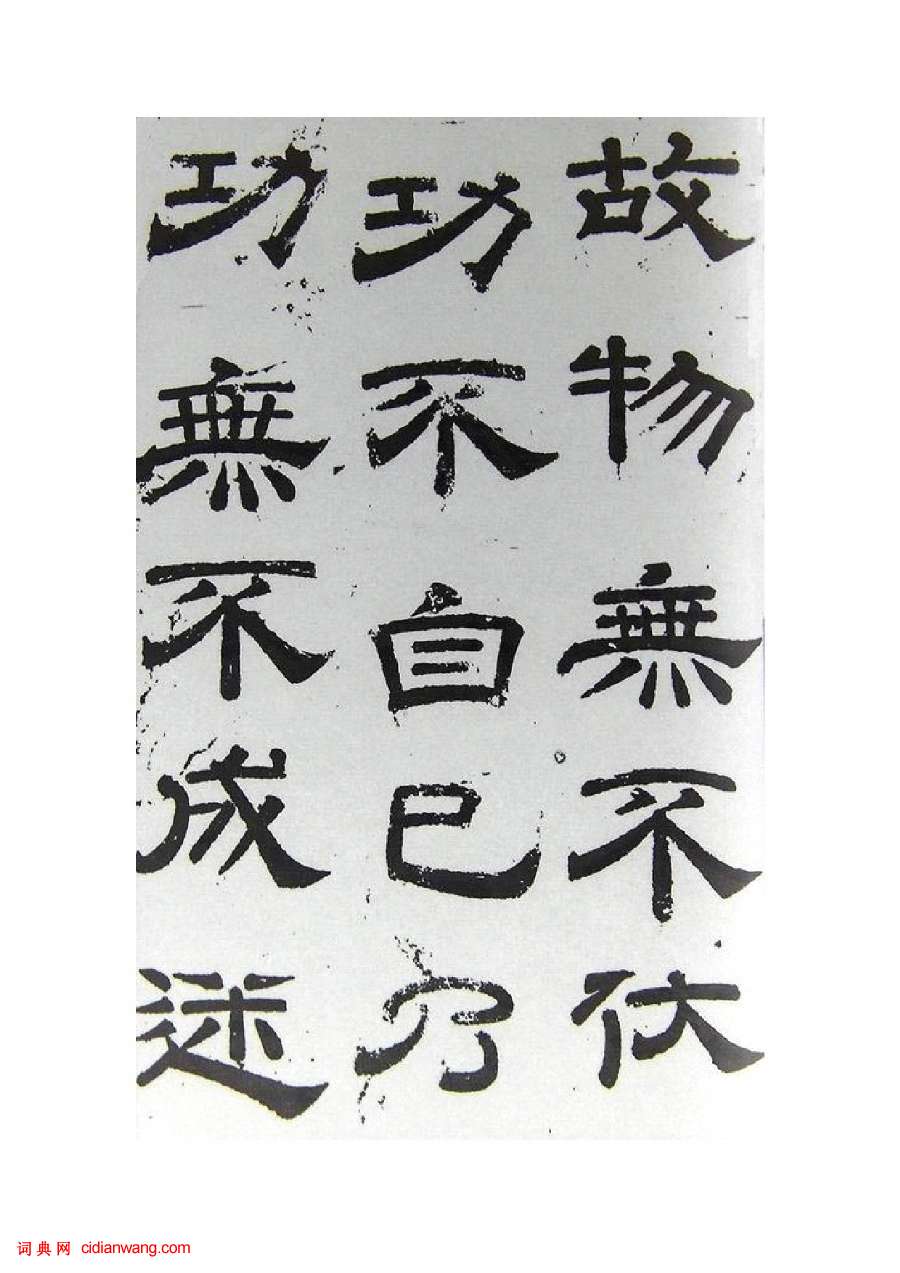 故物無不伏
功不自已乃
功無不成迷
词典网 cidianwang.com